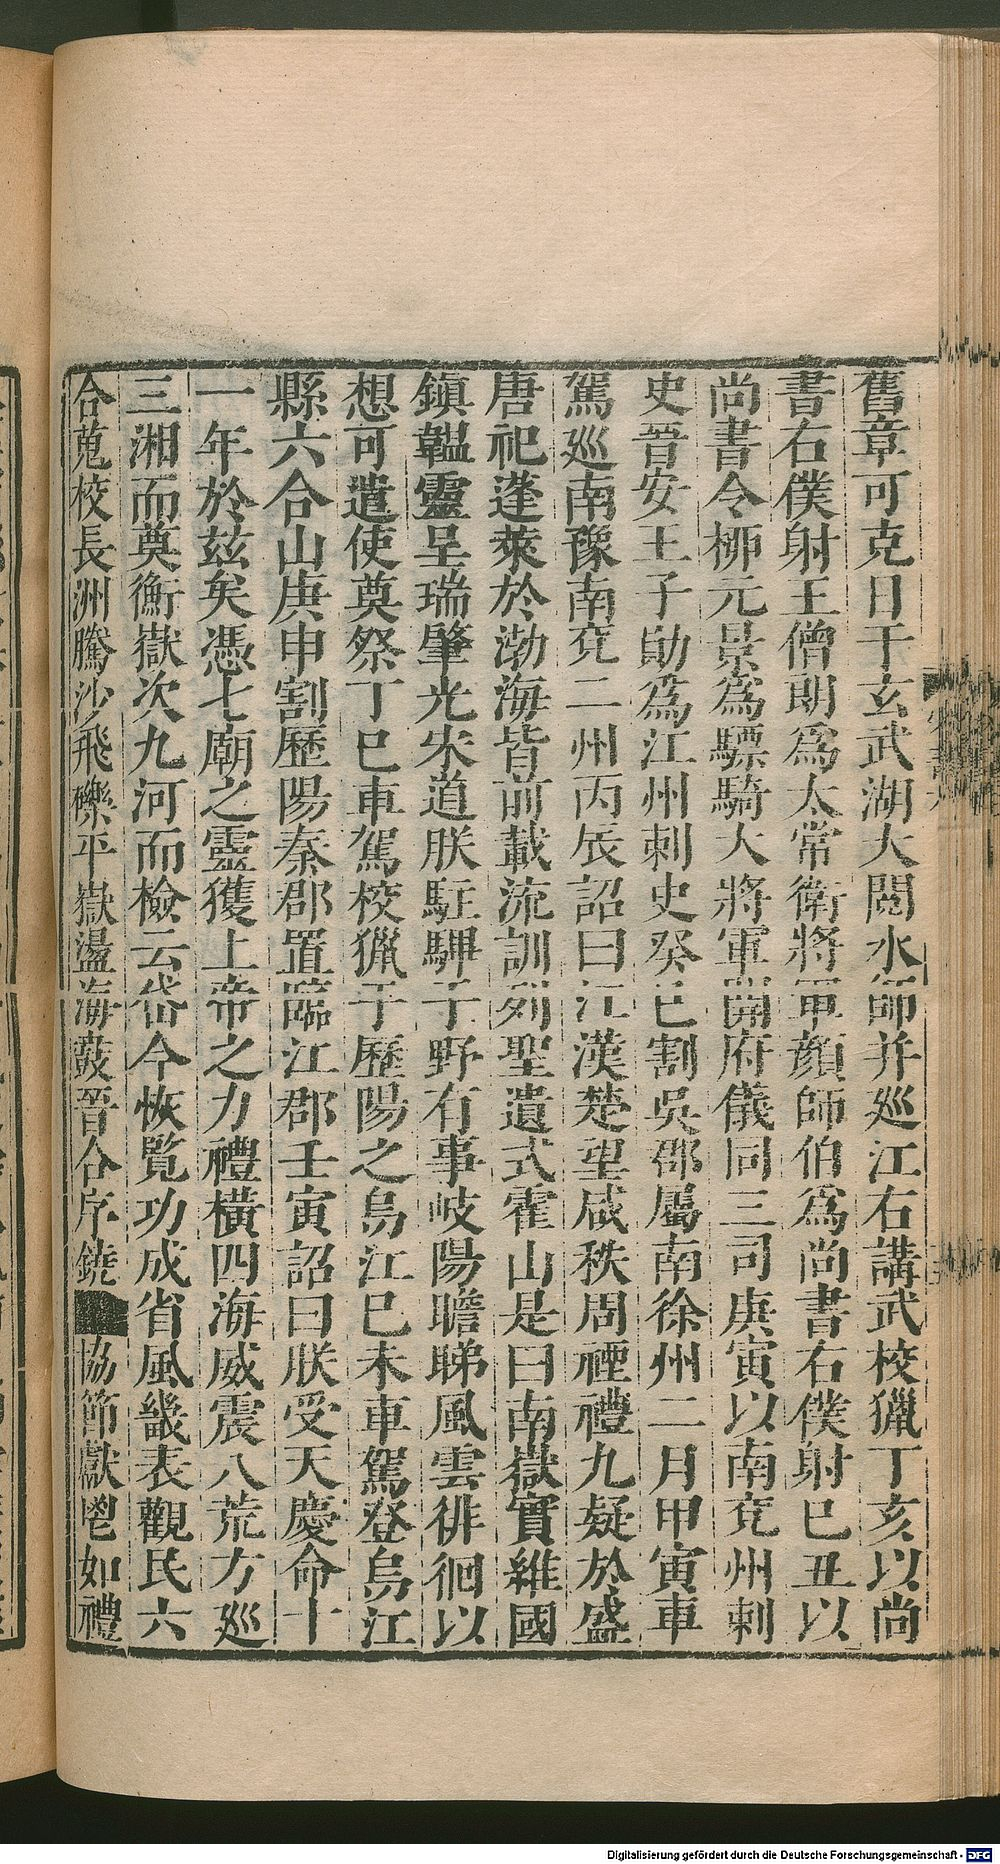 舊章可克日于玄武湖大閱水師并巡江右講武校獵丁亥以尚
書右僕射王僧朗爲太常衛將軍顏師伯爲尚書右僕射巳丑以
尚書令柳元景爲驃騎大將軍開府儀同三司庚寅以南兖州刺
史晉安王子勛爲江州刺史癸巳割吳郡屬南徐州二月甲寅車
駕巡南豫南兖二州丙辰詔曰江漢楚望咸秩周禋禮九疑於盛
唐祀蓬萊於渤海皆前載流訓列聖遺式霍山是曰南嶽實維國
鎮韞靈呈瑞肇光宋道朕駐驆于野有事岐陽瞻睇風雲徘徊以
想可遣使奠祭丁巳車駕校獵于歷陽之烏江巳未車駕登烏江
縣六合山庚申割歷陽秦郡置臨江郡壬寅詔曰朕受天慶命十
一年於兹矣憑七廟之靈獲上帝之力禮橫四海威震八荒方巡
三湘而奠衡嶽次九河而檢云岱今恢覽功成省風畿表觀民六
合蒐校長洲騰沙飛礫平嶽盪海鼓晉合序鐃協節獻鬯如禮
Digitalisierung gefördert durch die Deutsche Forschungsgemeinschaft - DFG